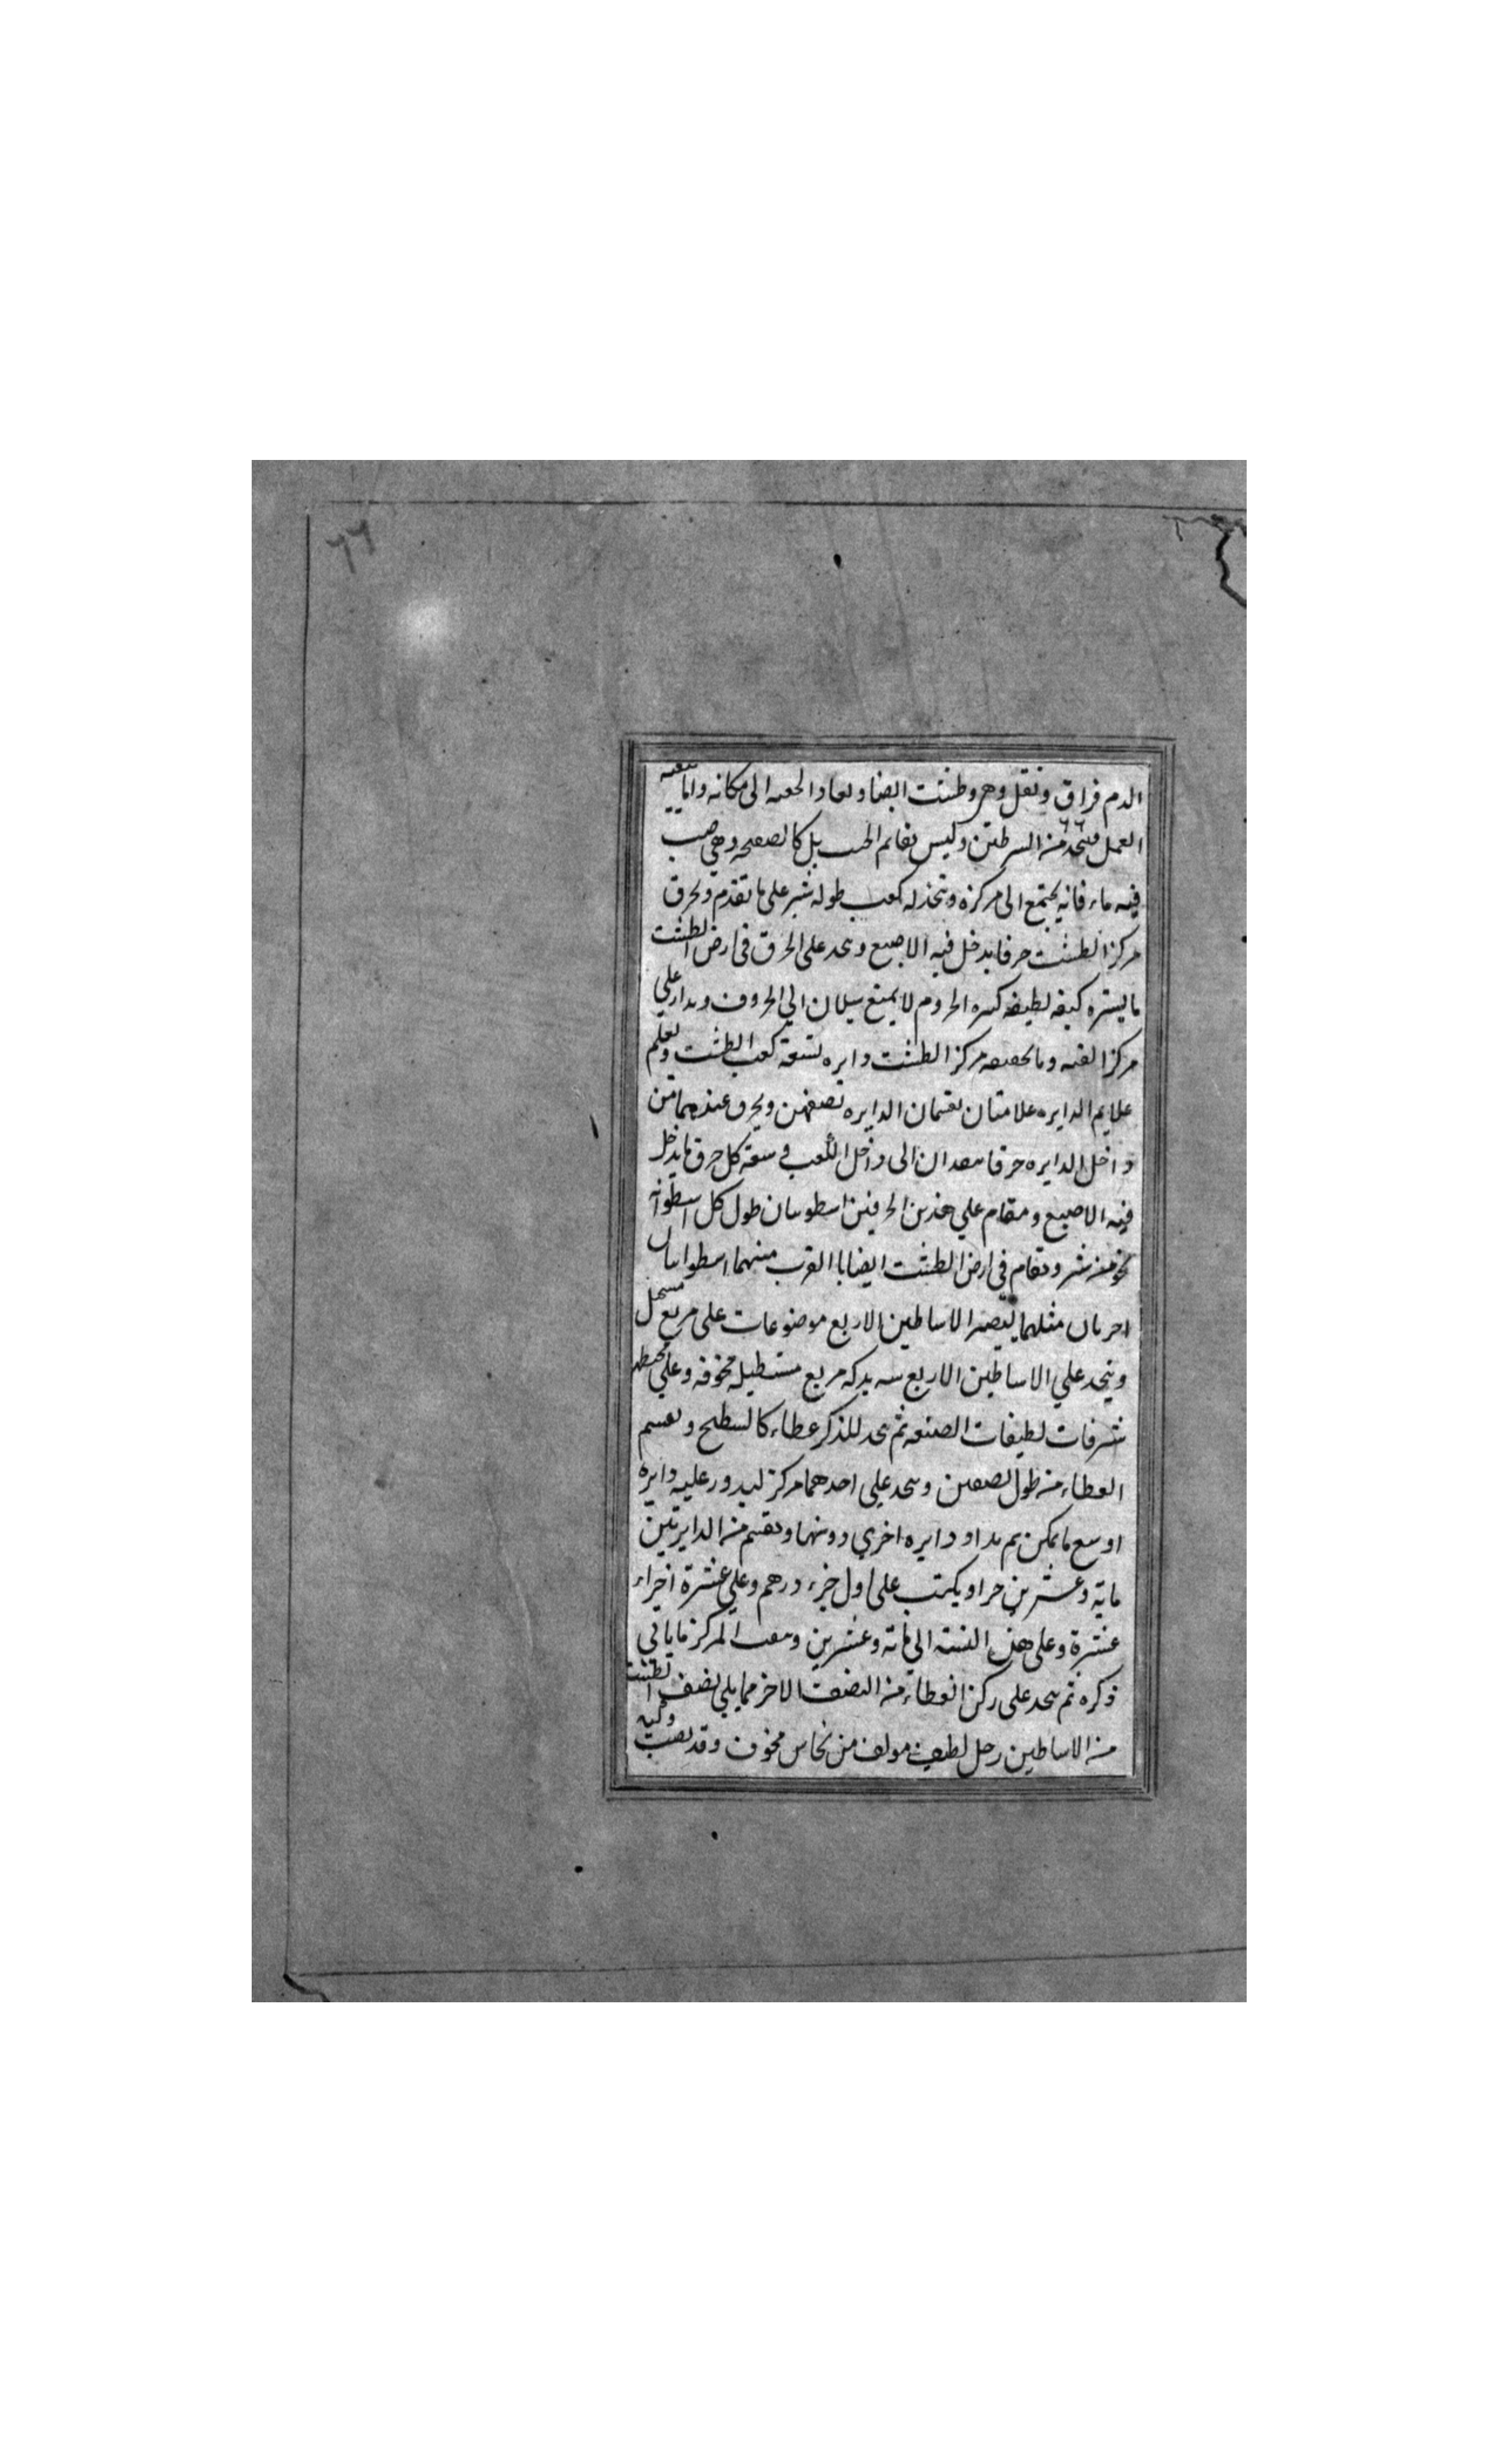 ٦٦
الدم فراق ونقل وهر وطشت ايضا ويعاد الى مكانه واما
العمل فيتخد من السرطتن وليس بقايم بل كالصفحه وهي صب
فيه ماء فانه يجتمع الى مركزه ويتخذ له كعب طوله شبر على ما تقدم ويخرق
مركز الطشت خرقا يدخل فيه الاصبع ويتخد على الخرق في ارض الطشت
ما يستره كبقه لطيفه الخروم لا يمنع سيلان الي الخروف ويدار علي
مركز وما مركز الطشت دايره تسعة كعب الطشت وتعلم
علايم الدايره علامتان تقسمان الدايره نصفين ويخرق عندهما من
داخل الدايره خرقا ينفدان الى داخل الكعب في سعة كل خرق ما يدخل
فيه الاصبع ويقام علي هذين الخرقين اسطوانتان طول كل اسطوانه
نحو من شبر ويقام في ارض الطشت ايضا بالقرب منهما اسطوانتان
اخريان مثلهما ليصير الاساطين الاربع موضوعات على مربع
ويتخد علي الاساطين الاربع بركه مربع مستطيله مخوفه وعلي محيطها
شرفات لطيفات الصنعه ثم يتخد للذكر عطاء كالسطح ويقسم
العطاء من طول نصفين ويتخد علي احدهما مركز ليدور عليه دايره
اوسع ما يمكن ثم يداو دايره اخري دونها وتقسم من الدايرتين
مايه وعشرين جزا ويكتب على اول جزء درهم وعلي عشرة اجزاء
عشرة وعلى هذه النسبه الى مائة وعشرين ويثقب المركز ما ياتي
ذكره ثم يتخد على ركن العطاء من النصف الاخر مما يلي نصف الطشت
من الاساطين رجل لطيف مولف من نحاس مخوف وقد نصب ركبه